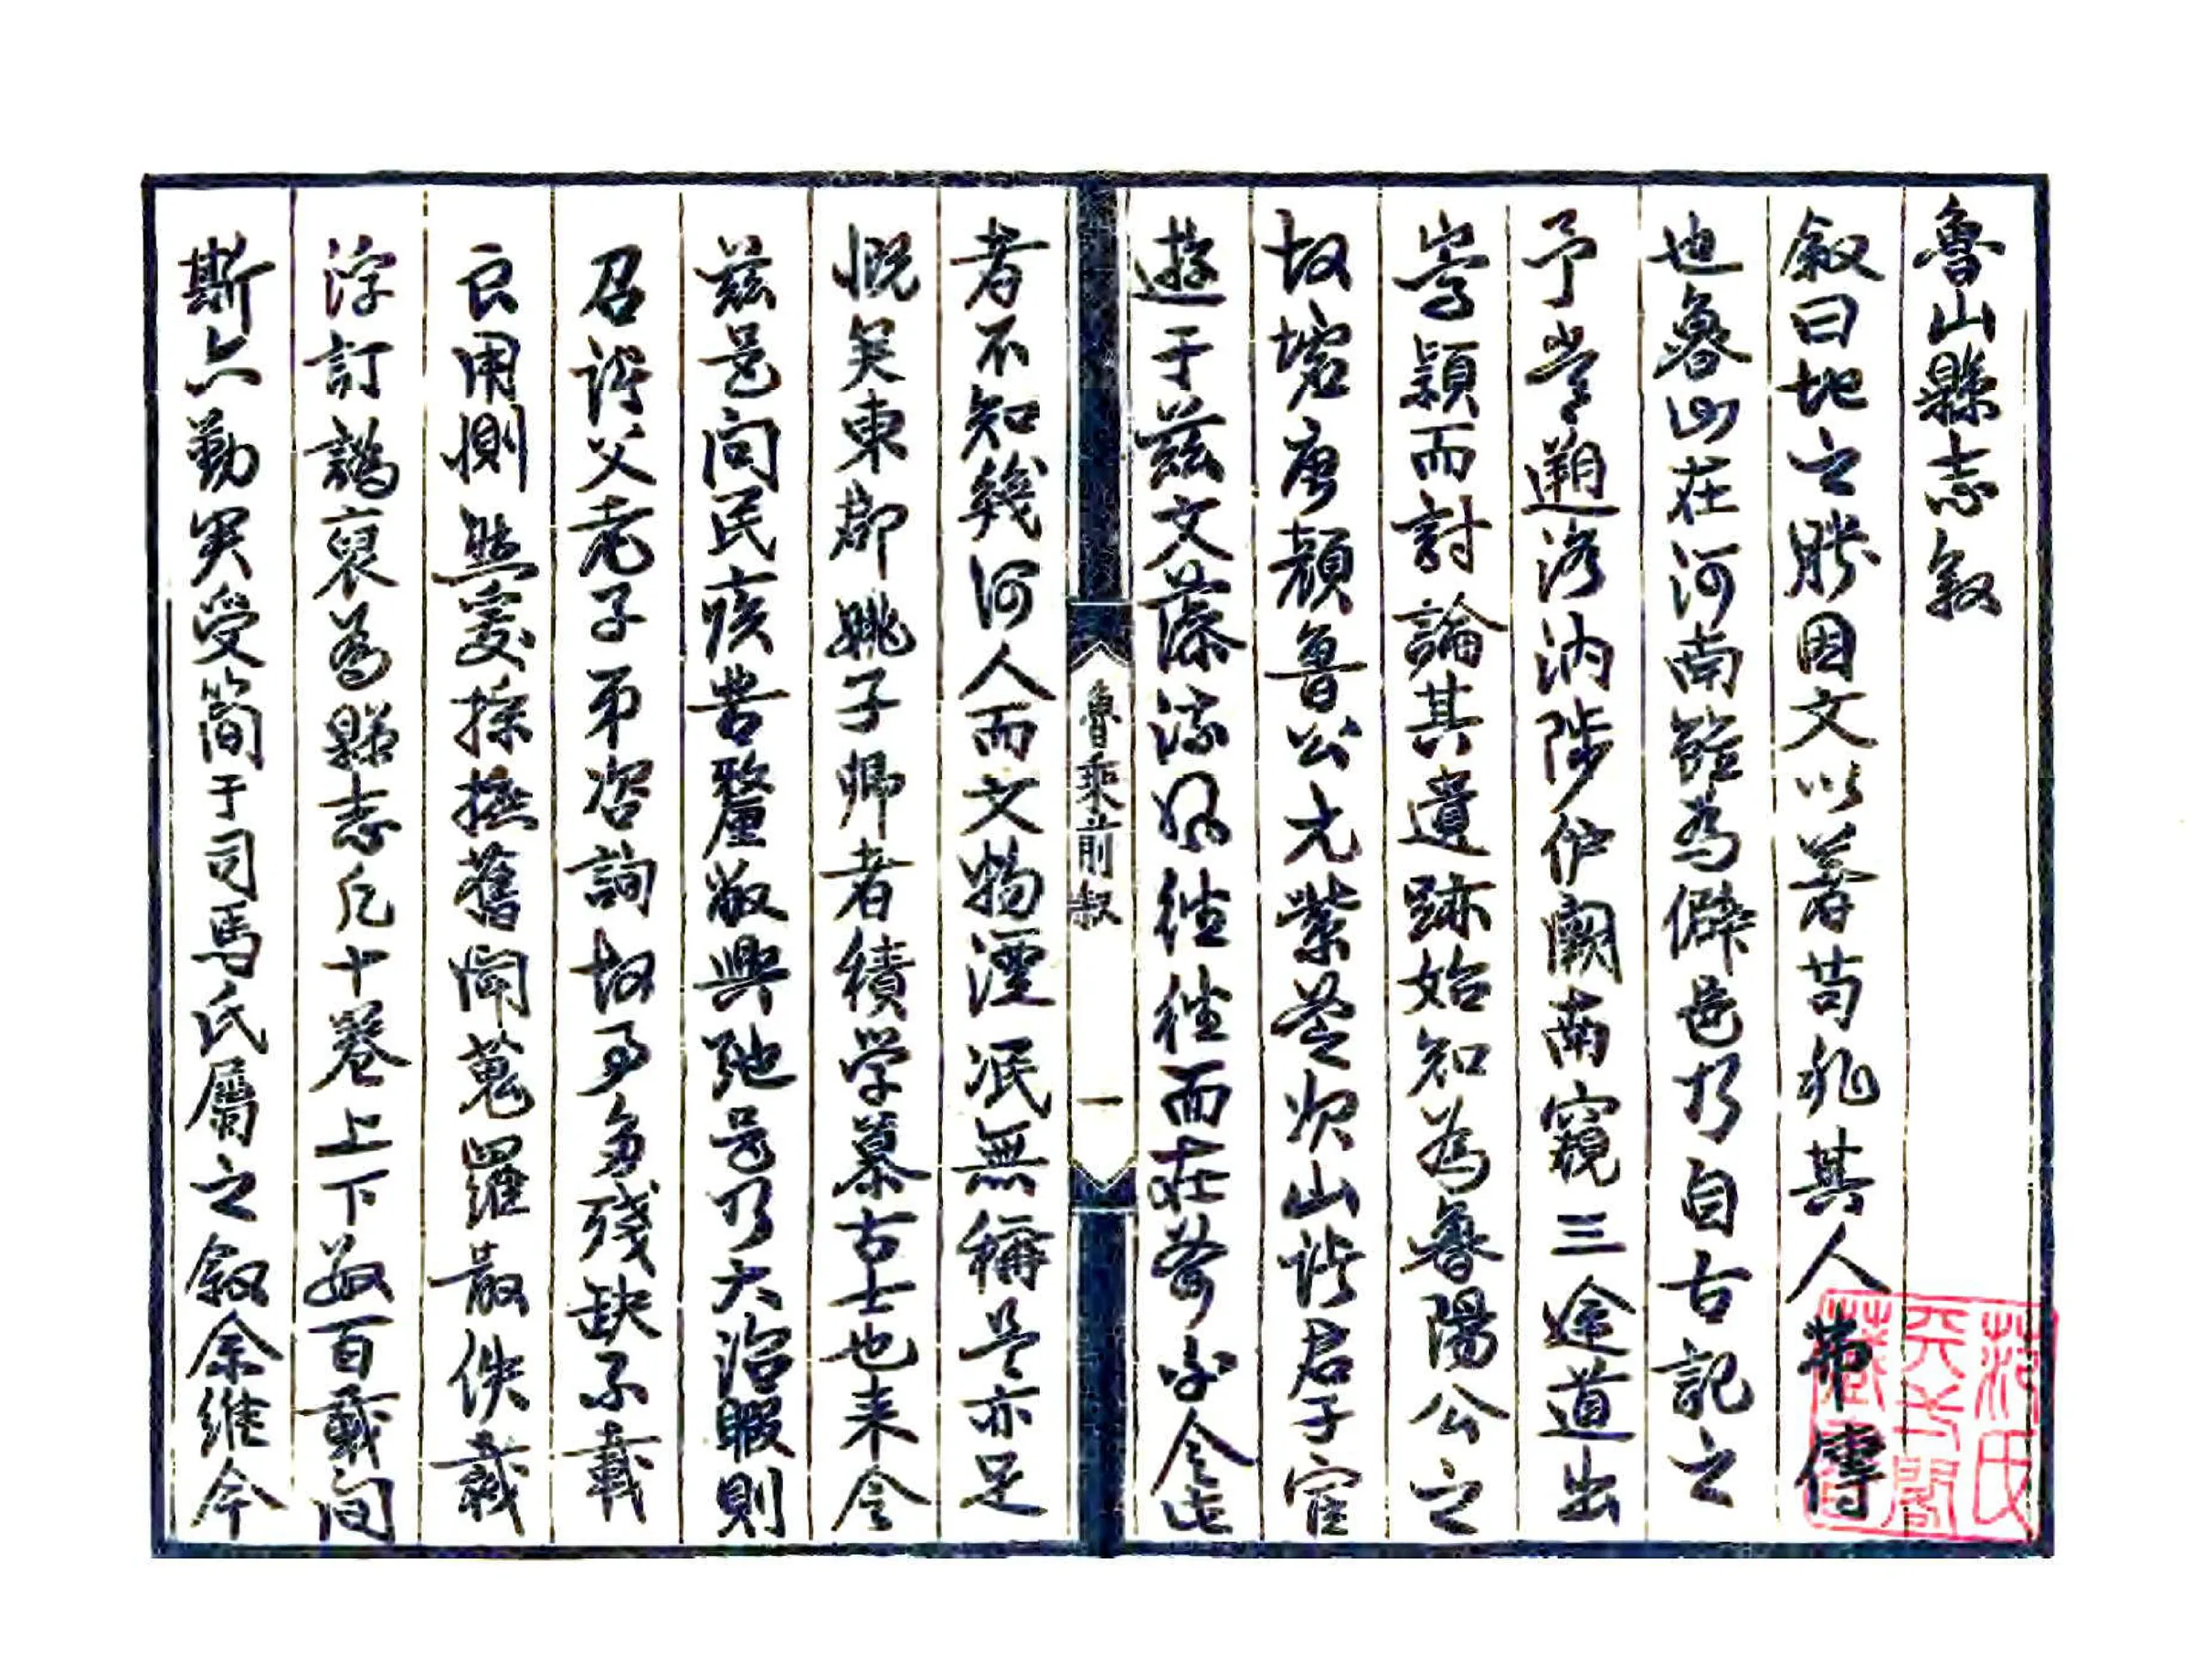 魯山縣志敘
叙曰地之勝因文以著苟非其人弗傳
也魯山在河南雖為僻邑乃自古記之
予嘗遡洛汭陟伊闕南窺三途道出
嵩潁而討論其遺跡始知為魯陽公之
故墟唐顏魯公元紫芝次山諸君子宦
遊于茲文藻流風往往而在夸父今古
者不知幾何人而文物湮泯無稱是亦足
慨矣東郡姚子卿者積學慕古士也来令
茲邑问民疾苦釐敝興弛邑乃大治暇則
召諸父老子弟咨詢故事多殘缺不載
良用惻然爰採摭舊聞蒐羅散佚裁
浮訂譌裒為縣志凡十卷上下數百載间
斯亦勤矣受简于司馬氏屬之叙余維今
魯乘前叙
一
范氏
天一閣
藏書